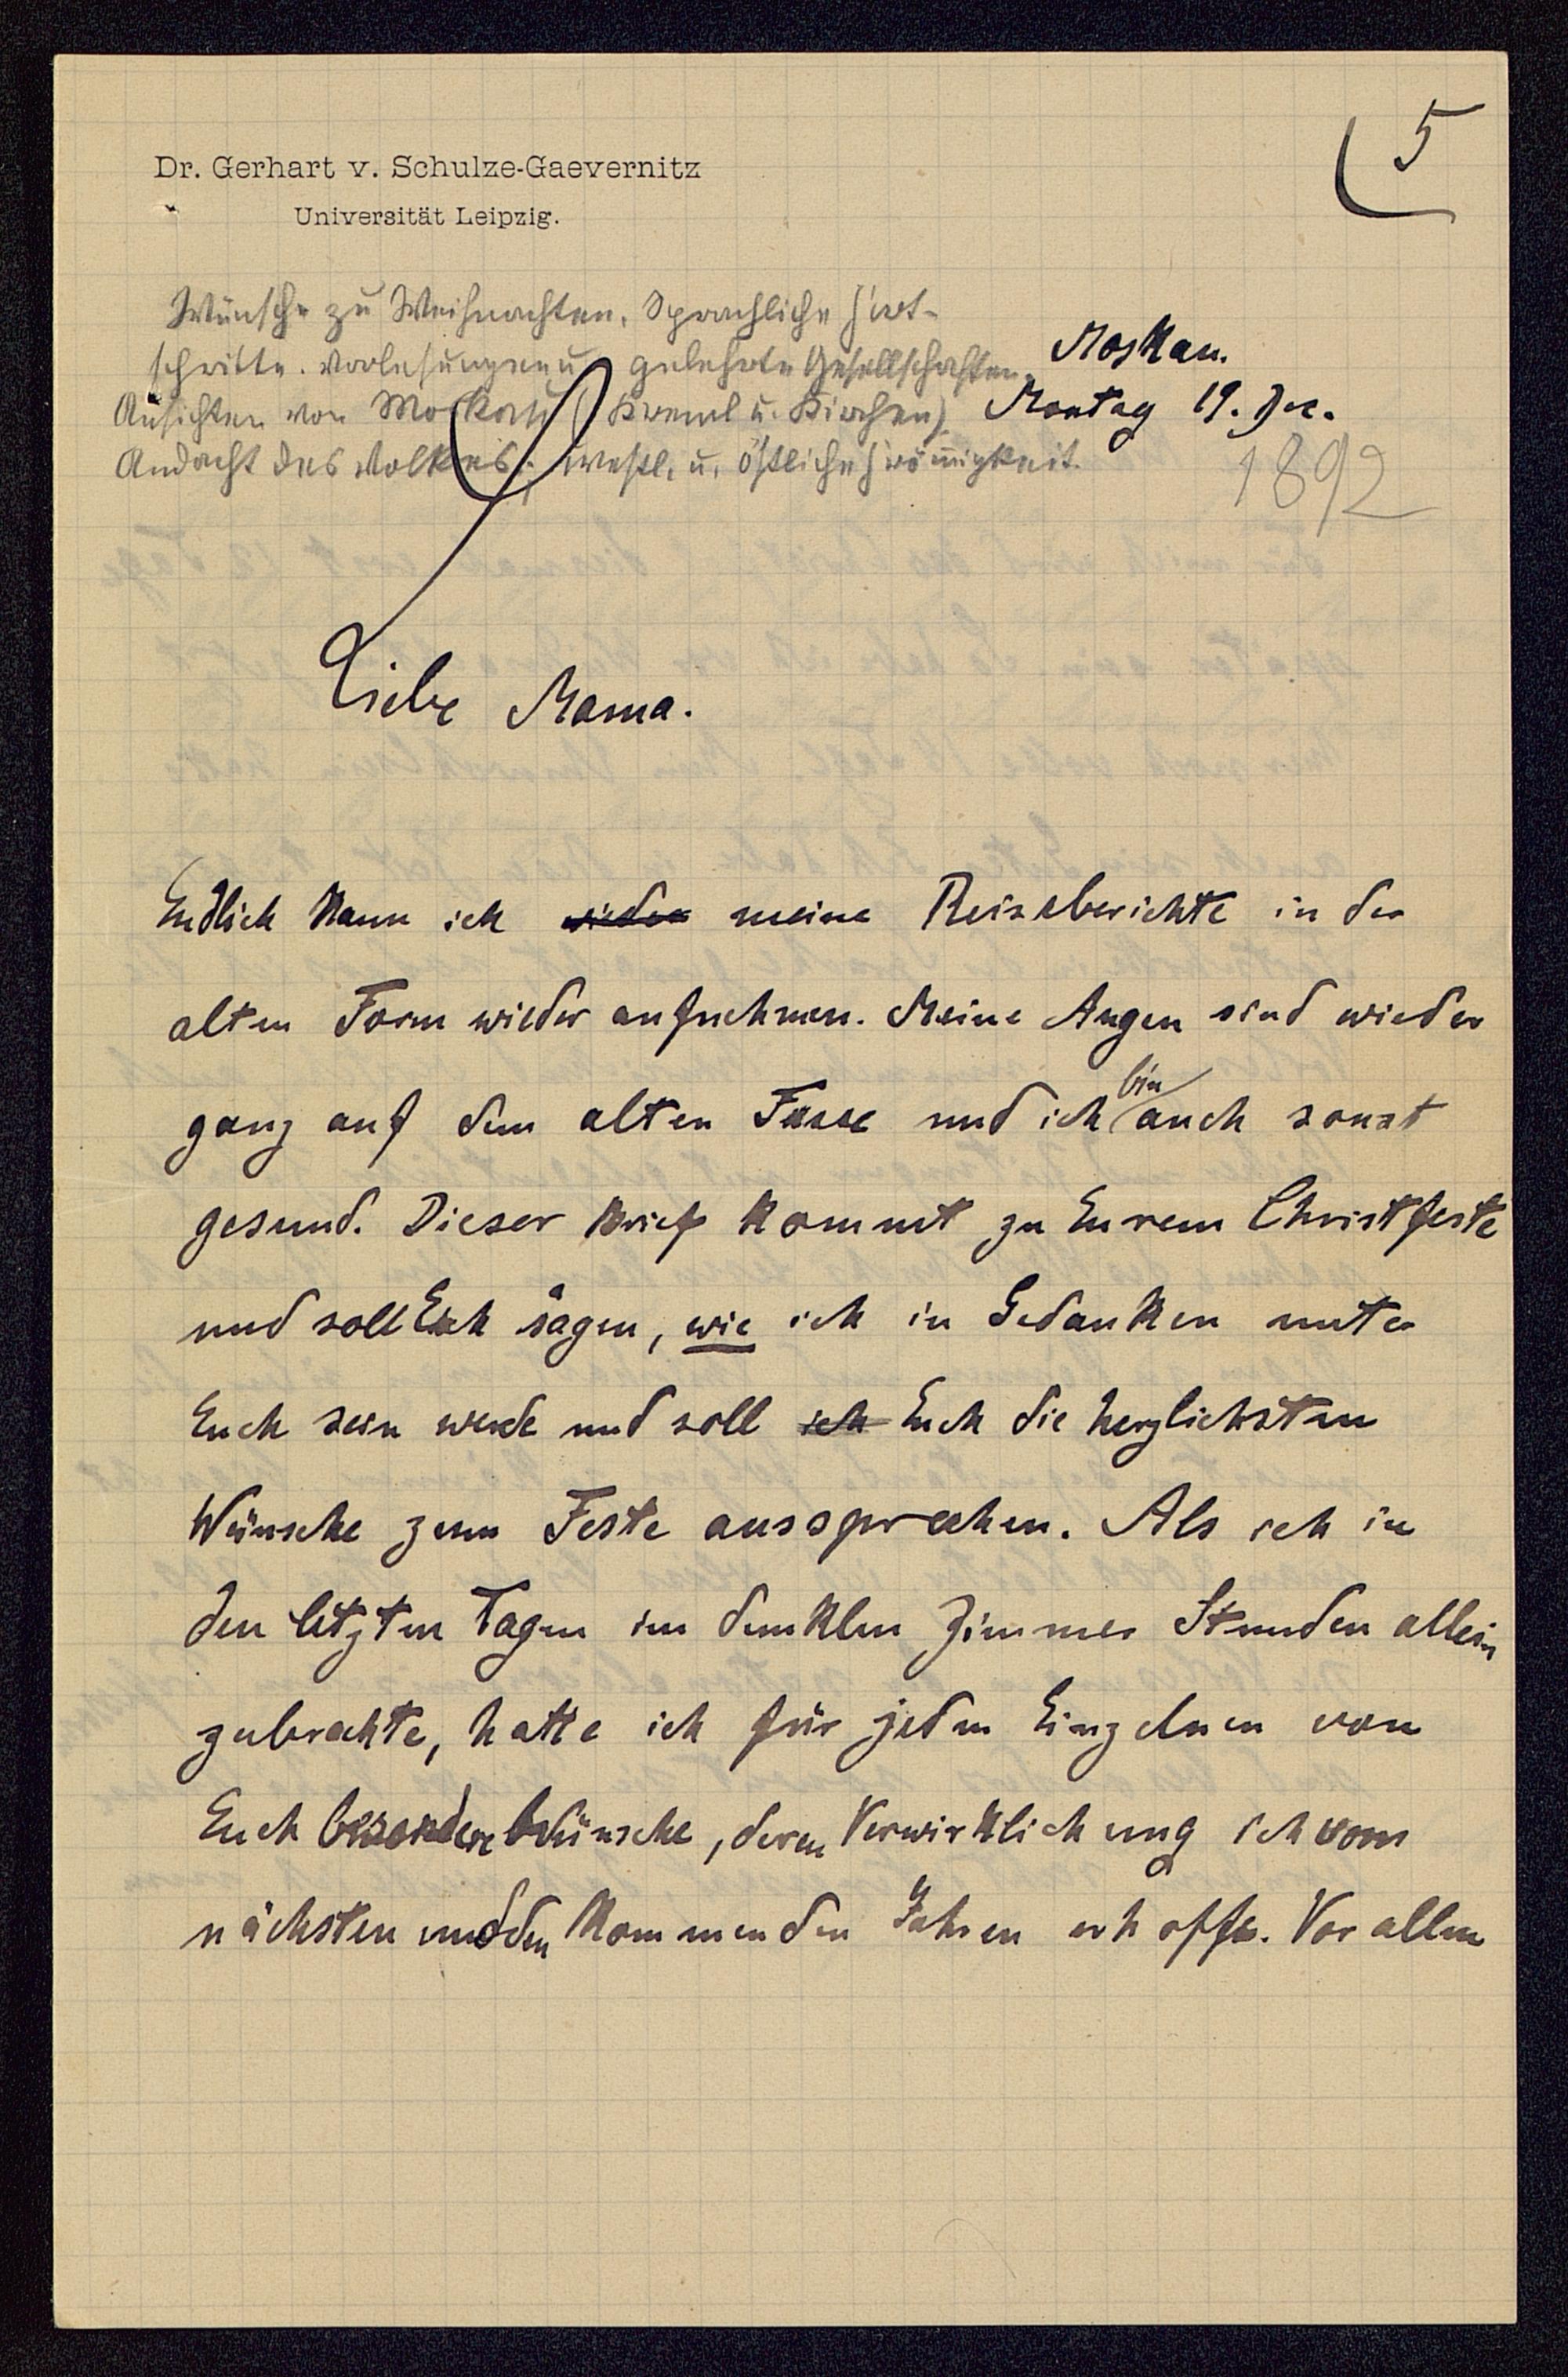 5
Dr. Gerhart v. Schulze-Gaevernitz
Universität Leipzig.
Wünsche zu Weihnachten. Sprachliche Fort-
schritte. Vorlesungen u. gelehrte Gesellschaften.
Ansichten von Moskau (Kreml u. Kirchen).
Andacht des Volkes; westl. u. östliche Frömmigkeit.
Moskau.
Montag 19. Dec.
1892
Liebe Mama.
Endlich kann ich wieder meine Reiseberichte in der
alten Form wieder aufnehmen. Meine Augen sind wieder
ganz auf dem alten Fusse und ich bin auch sonst
gesund. Dieser Brief kommt zu Eurem Christfeste
und soll Euch sagen, wie ich in Gedanken unter
Euch sein werde und soll ich Euch die herzlichsten
Wünsche zum Feste aussprechen. Als ich in
den letzten Tagen im dunklen Zimmer Stunden allein
zubrachte, hatte ich für jeden Einzelnen von
Euch besondere Wünsche, deren Verwirklichung ich vom
nächsten und den kommenden Jahren erhoffe. Vor allem